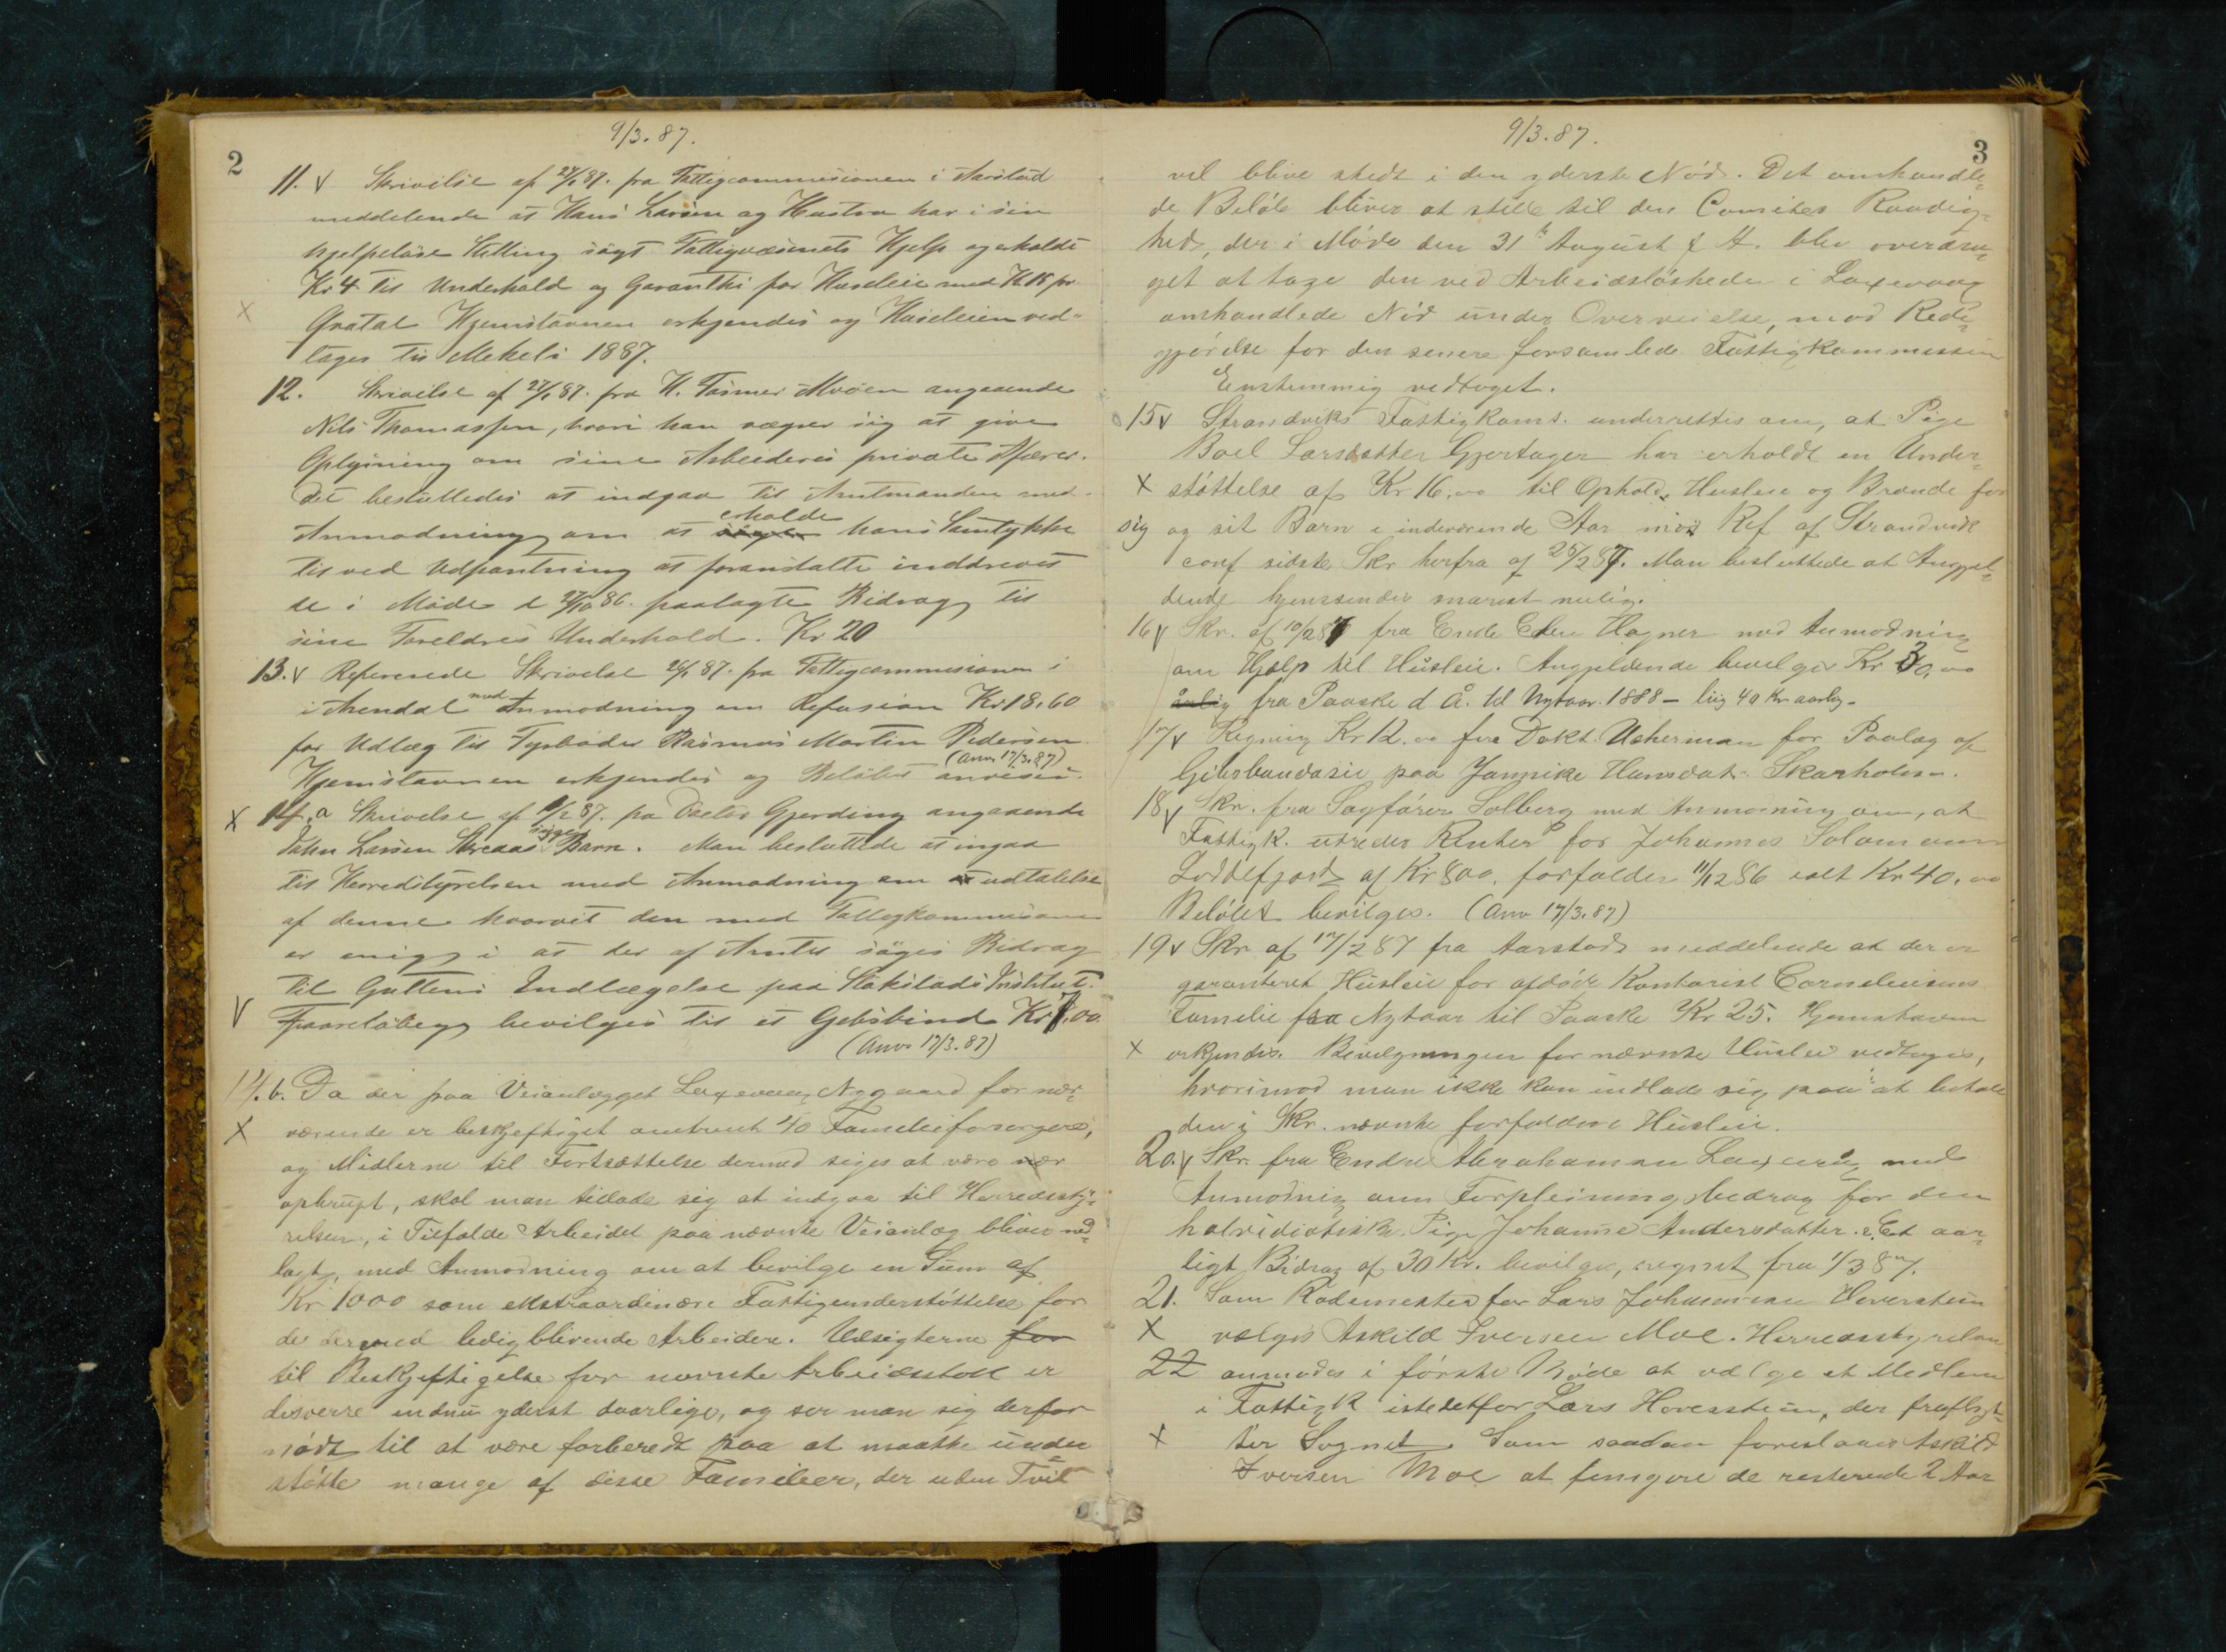 9/3.87.
2
11. V Skrivelse af 27/1 87. fra Fattigcommisionen i Aarstad
meddelende at Hans Larsen og Hustru har i sin
hjelpeløse Stilling søgt Fattigvæsenets Hjelp og erholdt
Kr 4 til Underhold og Garanthi for Husleie med K 15 pr.
X Qvatal Hjemstavnen erkjendes og Husleien ved-
tages til Mikeli 1887.
12. Skrivelse af 27/1 87. fra H. Mvøen angaaende
Nils Thomassen, hvori han vægrer sig at give
Oplysning om sine Arbeideres private Affærer.
Det besluttedes at indgaa til Amtmanden med
Anmodning om at søge erholde hans Samtykke
til ved Udpantning at foranstalte inddrevet
de i Møde d 27/10 86. paalagte Bidrag til
sine Foreldres Underhold. Kr 20
13. V Refererede Skrivelse 26/1 87. fra Fattigcommisionen i
i Arendal med Anmodning om Refusion Kr 18,60
for Udlæg til Rasmus Martin Pedersen
(Anv. 17/3.87)
Hjemstavnen erkjendes og Beløbet anvises.
X 14.a Skrivelse af 9/2 87. fra Doctor Gjerding angaaende
John Larsen Skreaas' syge Barn. Man besluttede at ingaa
til Herredstyrelsen med Anmodning om at udtalelse
af denne hvorvit den med Fattigkommisionen
er enig i at der af Amtet søges Bidrag
til Guttens Indlægelse paa Institut.
V Foreløbig bevilges til et Gibsbind Kr 8,00.
(Anv. 17/3.87)
14.b. Da der paa Veianlægget Laxevaag Nygaard for nær-
X værende er beskjeftiget omtrent 40 Familieforsørgere,
og Midlerne til Fortsættelse dermed siges at være nær
opbrugt, skal man tillade sig at indgaa til Herredssty-
relsen, i Tilfælde Arbeidet paa nævnte Veianlæg bliver ned-
lagt, med Anmodning om at bevilge en Sum af
Kr 1000 som ekstraordinære Fattigunderstøttelse for
de dermed ledigblivende Arbeidere. Udsigterne for
til Beskjeftigelse for nævnte Arbeidsstok er
desverre endnu yderst daarlige, og ser man sig derfor
nødt til at være forberedt paa at maatte under-
støtte mange af disse Familier, der uden Tvil
9/3.87.
3
vil blive stedt i den yderste Nød. Det omhandle-
de Beløb bliver at stille til den Comites Raadig-
hed, der i Møde den 31te August f A. blev overdra-
get at tage den ved Arbeidsløsheden i Laxevaag
omhandlede Nød under Overveielse, mod Rede-
gjørelse for den senere forsamlede Fattigkommission
Enstemmig vedtaget.
15 V Strandviks Fattigkoms. underrettes om, at Pige
Boel Larsdatter Gjertager har erholdt en Under-
X støttelse af Kr 16.00 til Ophold, Husleie og Brænde for
sig og sit Barn i indeværende Aar mod Ref af Strandvik
conf sidste Skr herfra af 25/2 87. Man besluttede at Angjel-
dende hjemsendes snarest mulig.
16 V Skr. af 10/2 87 fra Enke Elen Hagner med Anmodning
om Hjælp til Husleie. Angjeldende bevilges Kr 30,00
årlig fra Paaske d Å. til Nytaar 1888 – lig 40 Kr aarlig.
17 V Regning Kr 12.00 fra Dokt. Ucherman for Paalæg af
Gibsbandasie paa Jannike Hansdat. Skarholm.
18 V Skr. fra Sagfører Solberg med Anmodning om, at
Fattigk. utreder Renter for Johannes Solomonsen
Loddefjord af Kr 800, forfalden 11/12 86 ialt Kr 40,00
Beløbet bevilges. (Anv 17/3.87)
19 V Skr af 17/2 87 fra Aarstad meddelende at der er
garanteret Husleie for afdøde Kontorist Corneliusens
Familie fra Nytaar til Paaske Kr 25. Hjemstavnen
X erkjendes. Bevilgningen for nævnte Husleie vedtages,
hvorimod man ikke kan indlade sig paa at betale
den i Skr. nævnte forfaldne Husleie.
20. V Skr. fra Endre Abrahamsen Laxevaag med
Anmodnig om Forpleiningsbedrag for den
halvidiotiske Pige Johanne Andersdatter. Et aar-
ligt Bidrag af 30 Kr. bevilges, regnet fra 1/3 87.
21. Som Rodemester for Lars Johannesen Hoverstein
X vælges Askild Iversen Moe. Herredsstyrelsen
22 anmodes i første Møde at vælge et Medlem
i Fattigk istedetfor Lars Hoverstein, der fraflyt-
X ter Sognet. Som saadan foreslaaes Askild
Iversen Moe at fungere de resterende 2 Aar